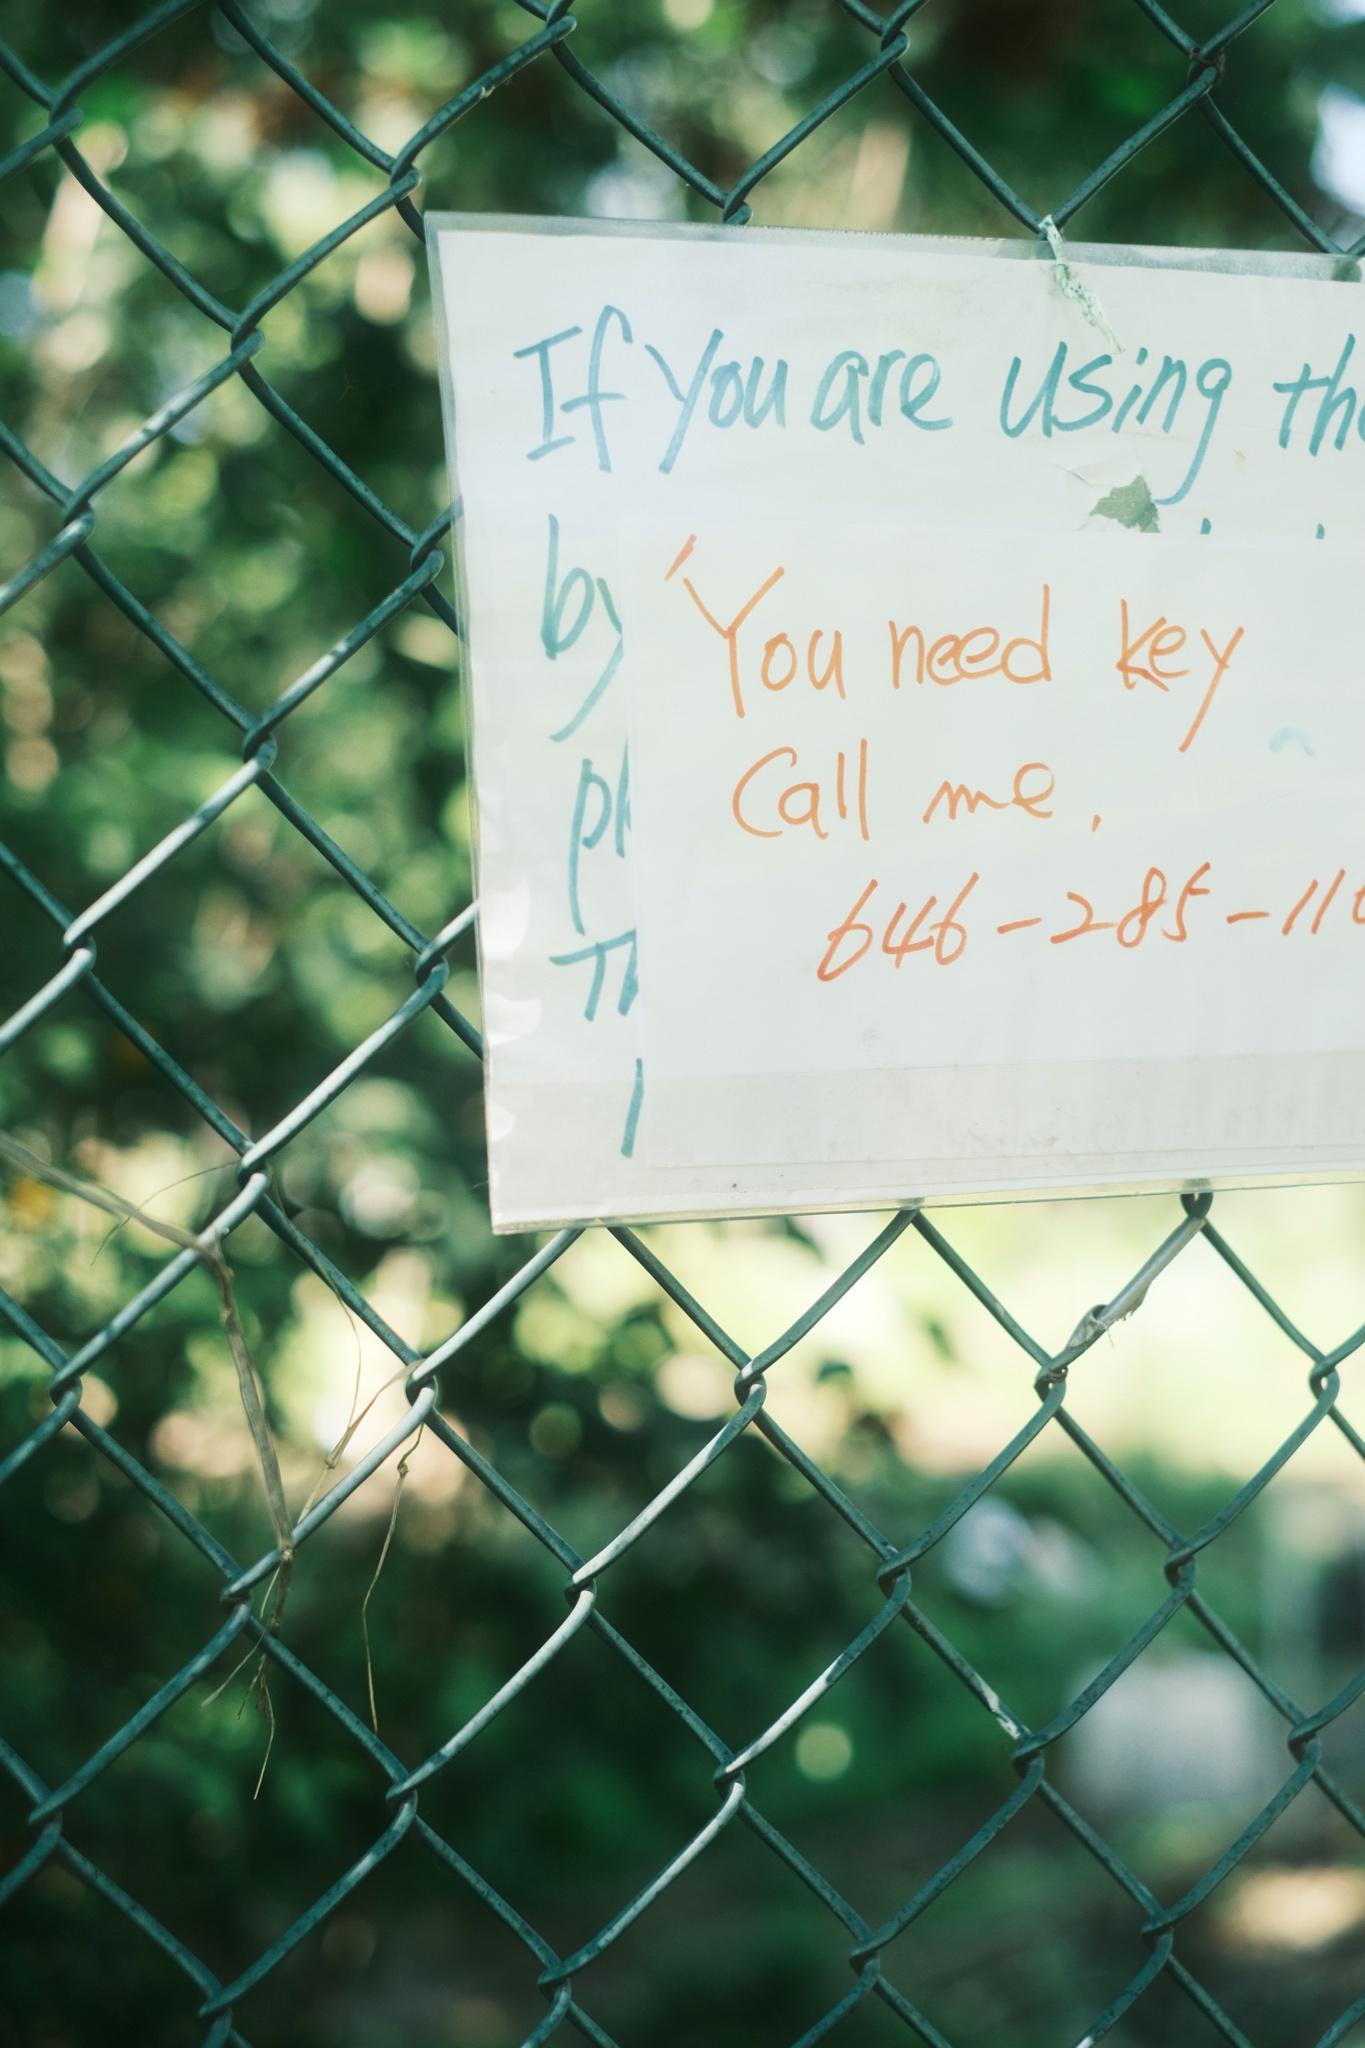 If you are using
by
You need key
Call me.
646-285-11